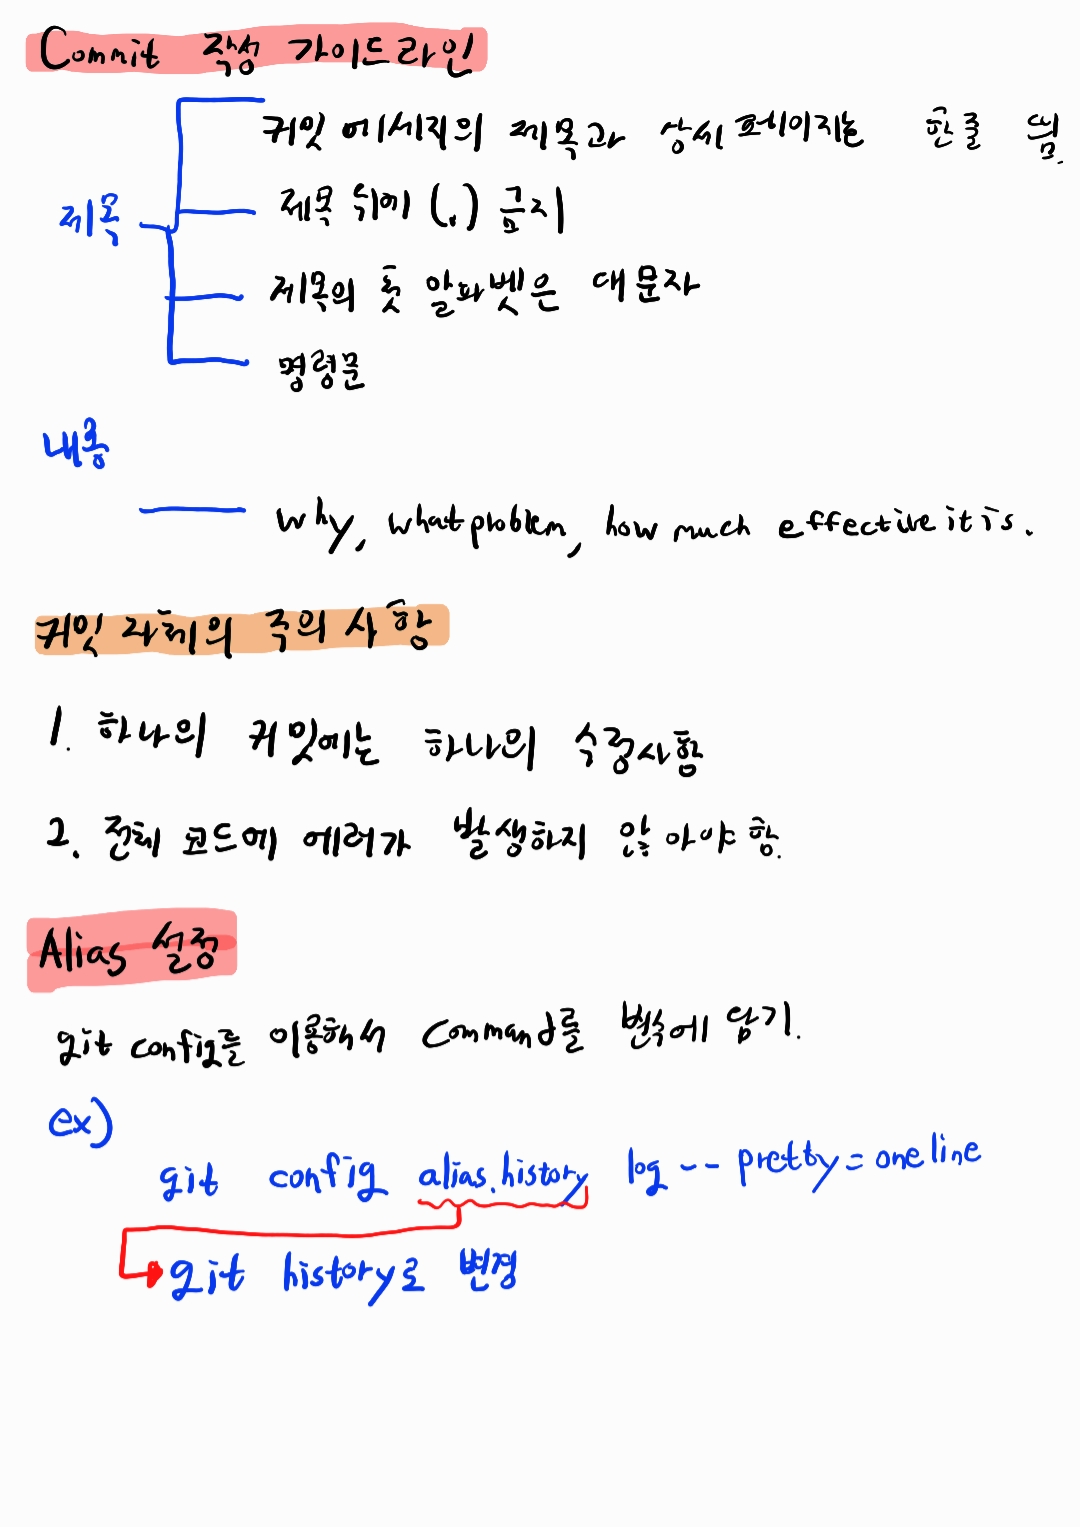 Commit 작성 가이드라인
커밋 메세지의 제목과 상세 페이지는 한줄 띔.
제목
제목 뒤에 (.) 금지
제목의 첫 알파벳은 대문자
명령문
내용
why, what problem, how much effective it is.
커밋 자체의 주의 사항
1. 하나의 커밋에는 하나의 수정사항
2. 전체 코드에 에러가 발생하지 않아야 함.
Alias 설정
git config를 이용해서 Command를 변수에 담기.
ex)
git config alias.history log -- pretty = oneline
git history로 변경